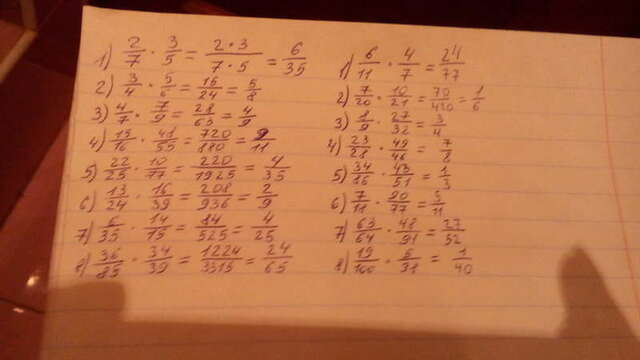 1) 2/7 · 3/5 = 2·3/7·5 = 6/35
2) 3/4 · 5/6 = 15/24 = 5/8
3) 4/7 · 7/9 = 28/63 = 4/9
4) 15/16 · 41/55 = 720/880 = 9/11
5) 22/25 · 10/77 = 220/1925 = 4/35
6) 13/24 · 16/39 = 208/936 = 2/9
7) 6/35 · 14/15 = 84/525 = 4/25
8) 36/85 · 34/39 = 1224/3315 = 24/65
1) 6/11 · 4/7 = 24/77
2) 7/20 · 10/21 = 70/420 = 1/6
3) 8/9 · 27/32 = 3/4
4) 23/28 · 49/46 = 7/8
5) 34/86 · 43/51 = 1/3
6) 7/11 · = 5/11
7) 63/64 · 48/91 = 27/52
8) 19/100 · = 1/40